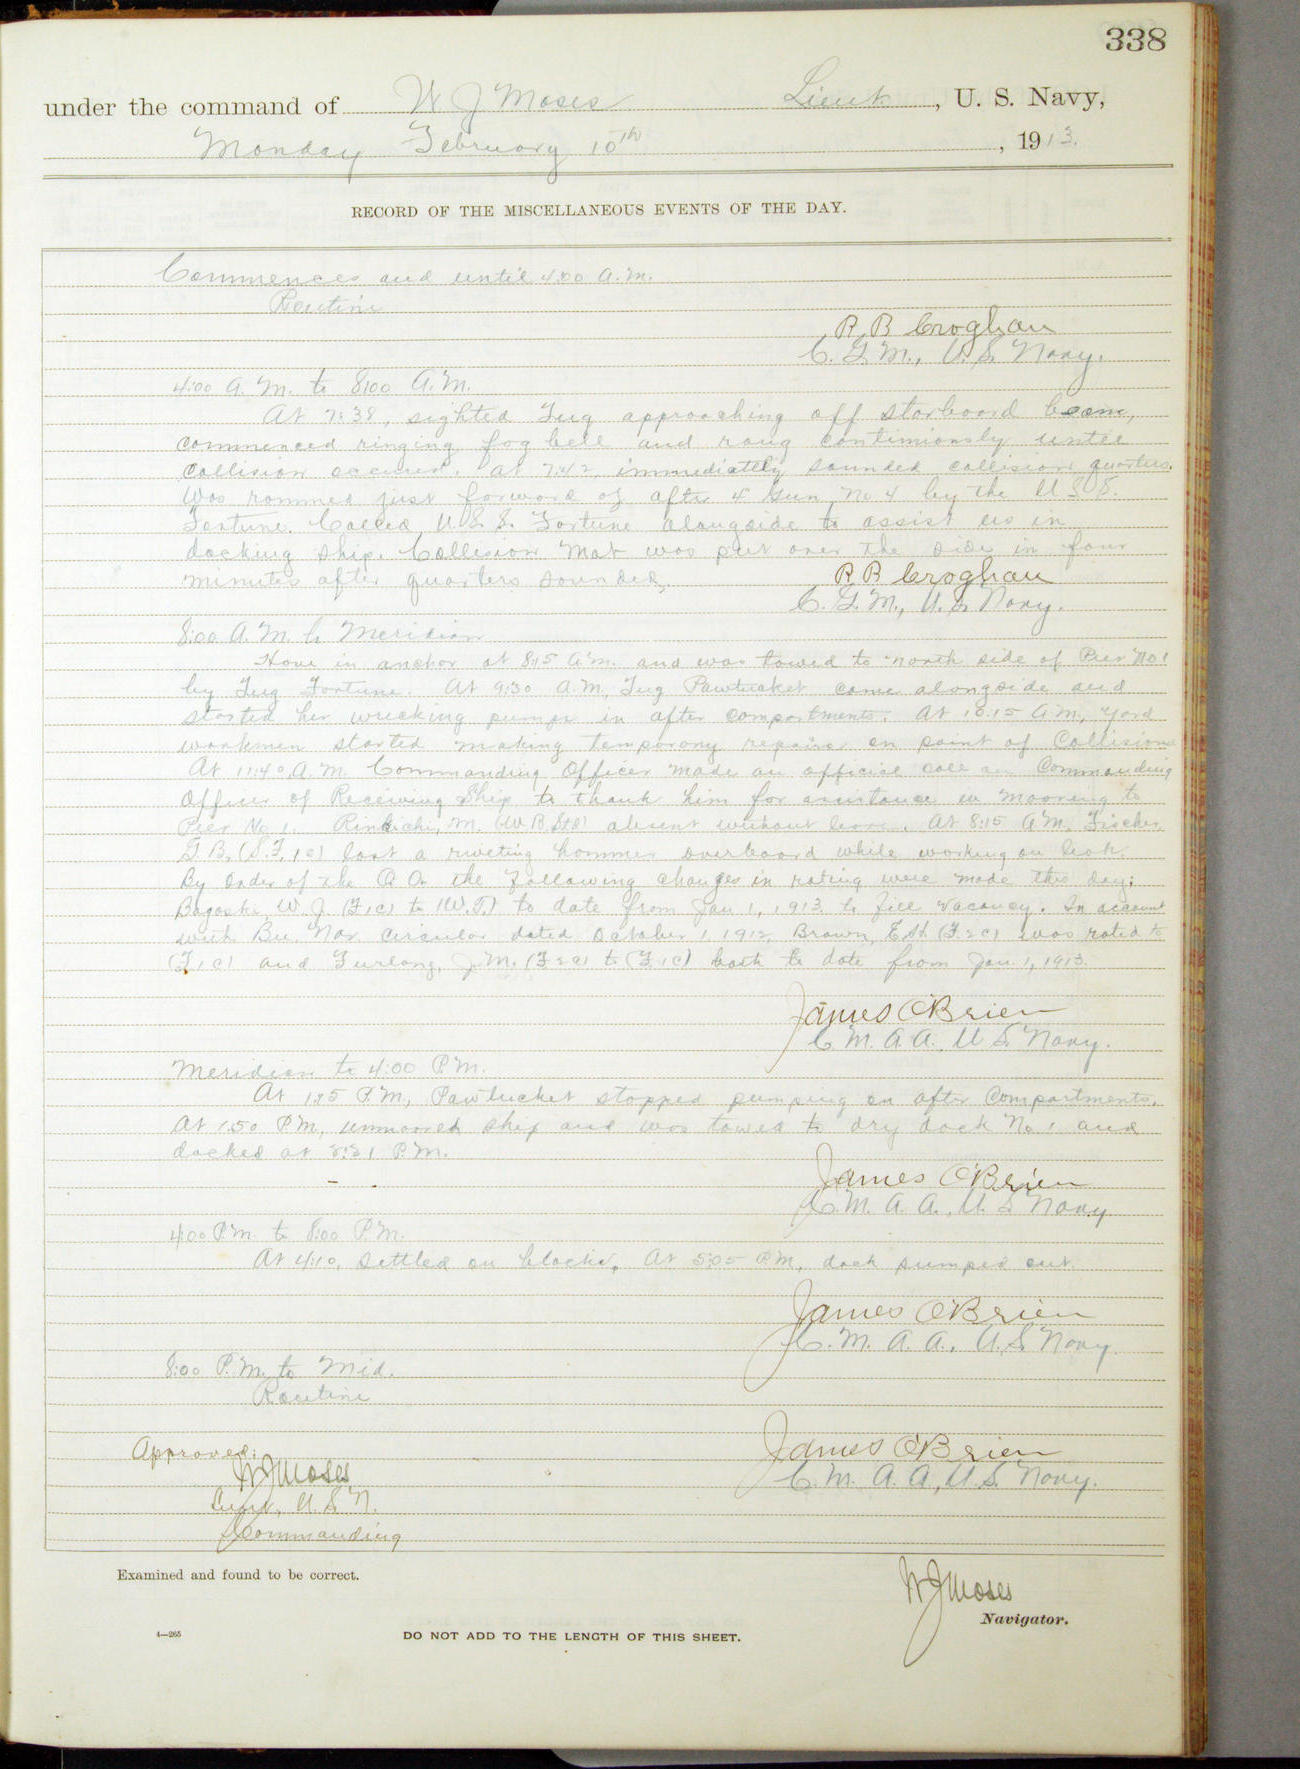 338
under the command of W J Moses Lieut., U. S. Navy,
Monday February 10th, 1913.
RECORD OF THE MISCELLANEOUS EVENTS OF THE DAY.
Commences and until 4:00 A.M.
Routine
R B Croghan
C. G. M., U. S. Navy.
4:00 A. M. to 8:00 A.M.
At 7:38, sighted Tug approaching off starboard beam,
commenced ringing fog bell and rang continuously until
collision occured. At 7:42, immediately sounded collision quarters.
Was rammed just forward of after 4" Gun No 4 by the U S S.
Fortune. Called U.S.S. Fortune alongside to assist us in
docking ship. Collision Mat was put over the side in four
minutes after quarters sounded.
R B Croghan
C. G. M., U. S. Navy.
8:00 A.M. to Meridian
Hove in anchor at 8:15 A.M. and was towed to north side of Pier No 1
by Tug Fortune. At 9:30 A.M, Tug Pawtucket came alongside and
started her wrecking pumps in after compartments. At 10:15 A.M, yard
workmen started making temporary repairs on point of Collision
At 11:40 A.M. Commanding Officer made an official call on Commanding
Officer of Receiving Ship to thank him for assistance in mooring to
Pier No 1. M. absent without leave. At 8:15 A.M. Fischer,
G.B. (S.F. 1c) lost a riveting hammer overboard while working on leak.
By order of the C O the following changes in rating were made this day:
W. J. (F1c) to (W.T.) to date from Jan 1, 1913 to fill vacancy. In account
with Bu. Nav. Circular dated October 1, 1912, Brown, (F.2c) was rated to
(F1c) and Furlong, J.M. (F2c) to (F.1c) both to date from Jan. 1, 1913.
James O'Brien
C M. A A., U S. Navy.
Meridian to 4:00 P.M.
At 1:25 P.M, Pawtucket stopped pumping on after Compartments.
At 1:50 P.M, unmoored ship and was towed to dry dock No 1 and
docked at P.M.
James O'Brien
C. M. A. A., U. S Navy
4:00 P.M. to 8:00 P.M.
At 4:10, settled on blocks. At 5:05 P.M, dock pumped out.
James O'Brien
C. M. A. A., U. S Navy.
8:00 P.M. to Mid.
Routine
James O'Brien
C. M. A. A, U. S. Navy.
Approved:
W J Moses
Lieut, U. S. N.
Commanding
Examined and found to be correct.
W J Moses
Navigator.
4—265
DO NOT ADD TO THE LENGTH OF THIS SHEET.